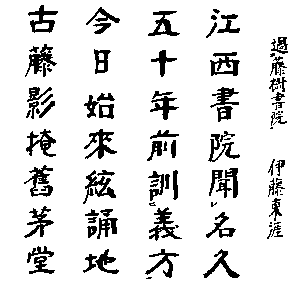 過藤樹書院　伊藤東涯
江西書院聞名久
五十年前訓義方
今日始來絃誦地
古藤影掩舊茅堂